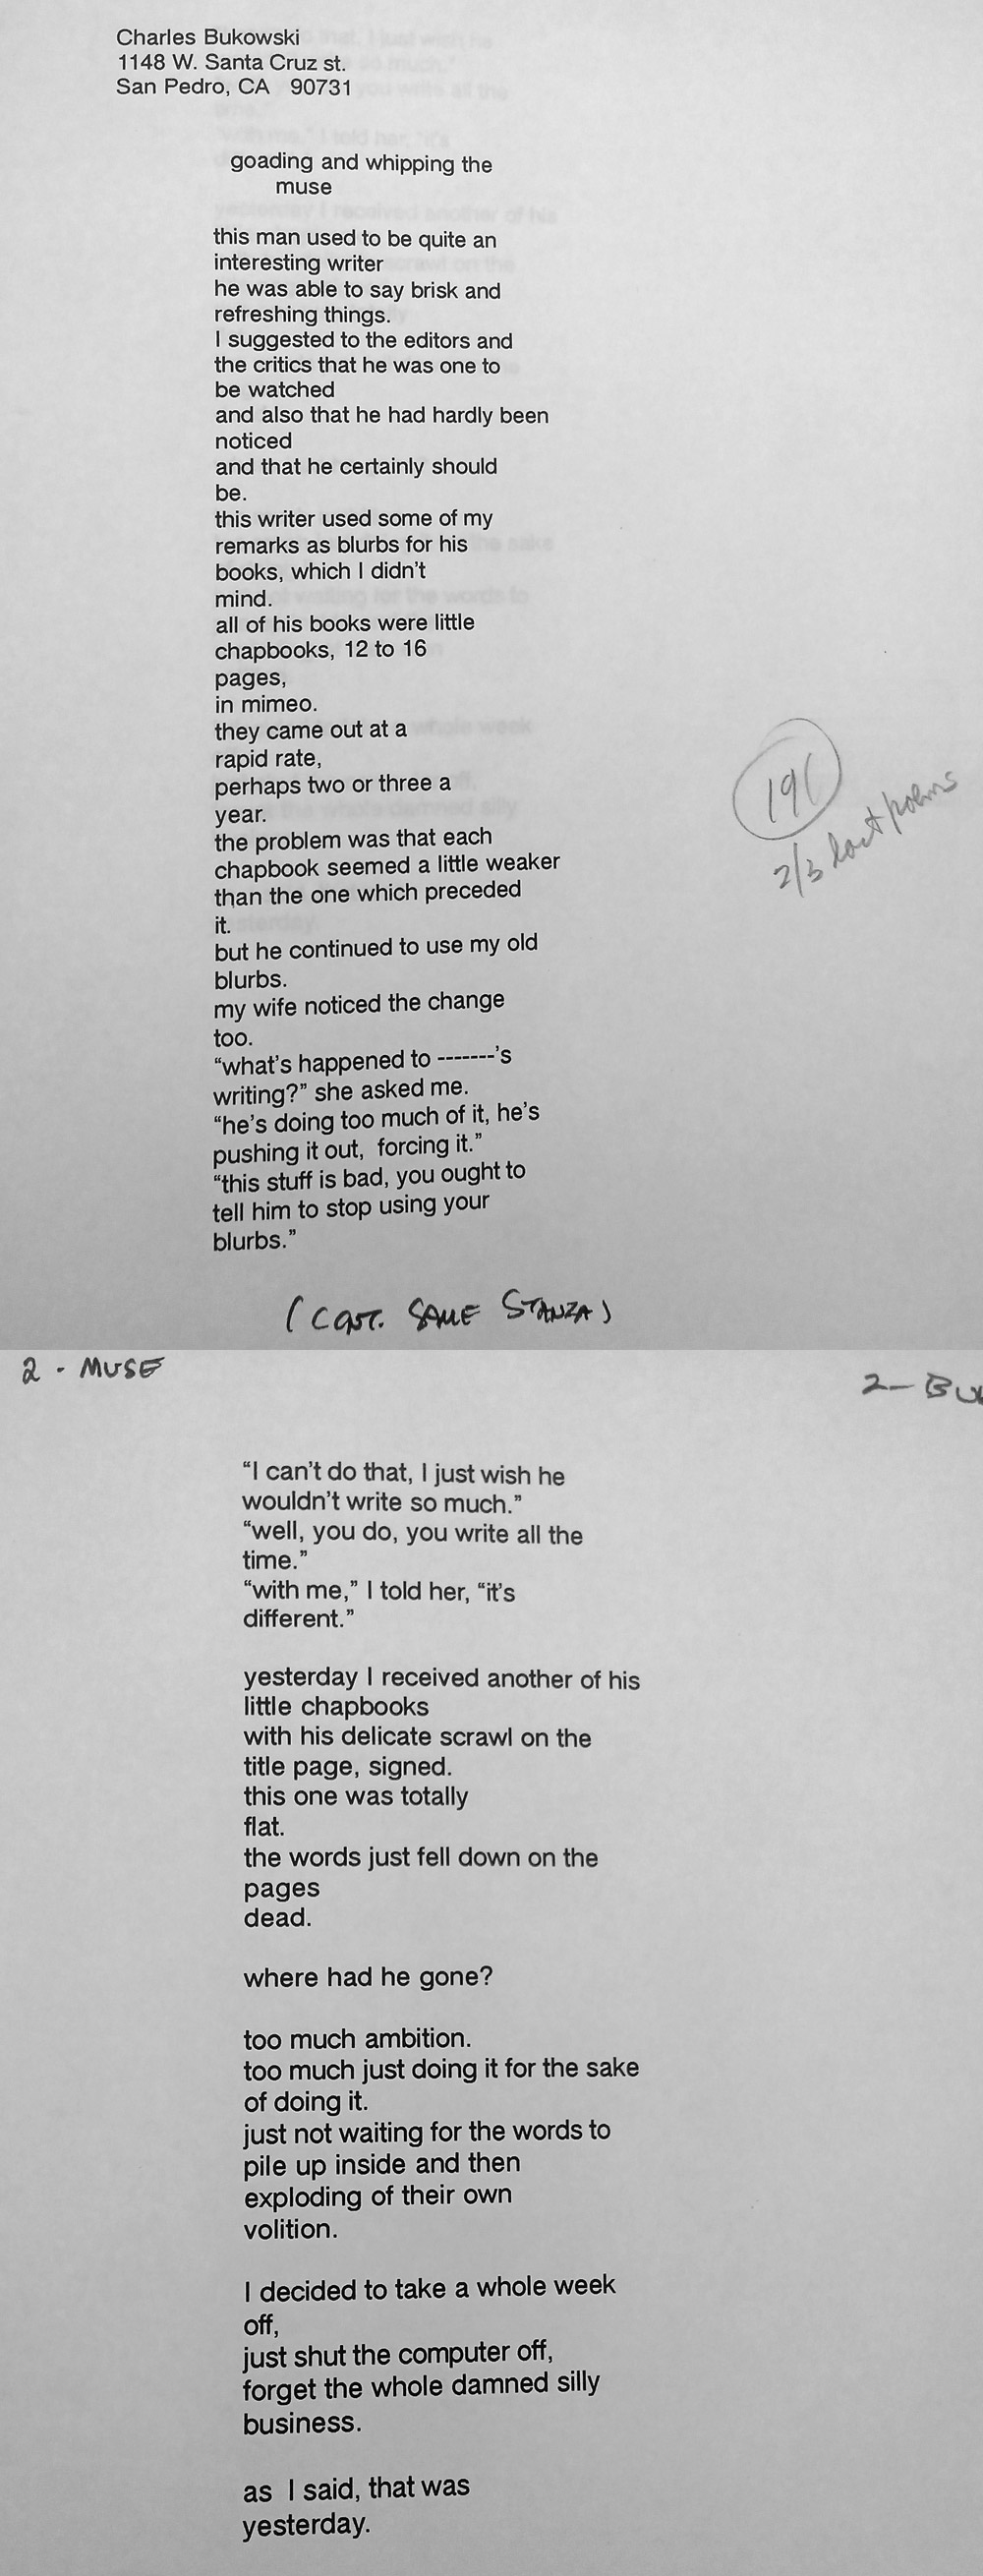 Charles Bukowski
1148 W. Santa Cruz st.
San Pedro, CA 90731
goading and whipping the
muse
this man used to be quite an
interesting writer
he was able to say brisk and
refreshing things.
I suggested to the editors and
the critics that he was one to
be watched
and also that he had hardly been
noticed
and that he certainly should
be.
this writer used some of my
remarks as blurbs for his
books, which I didn't
mind.
all of his books were little
chapbooks, 12 to 16
pages,
in mimeo.
they came out at a
rapid rate,
perhaps two or three a
year.
the problem was that each
chapbook seemed a little weaker
than the one which preceded
it.
but he continued to use my old
blurbs.
my wife noticed the change
too.
“what's happened to -------'s
writing?” she asked me.
“he's doing too much of it, he's
pushing it out, forcing it.”
“this stuff is bad, you ought to
tell him to stop using your
blurbs.”
191
2/3 last poems
(CONT. SAME STANZA)
2 - MUSE
2 - BU
“I can't do that, I just wish he
wouldn't write so much.”
“well, you do, you write all the
time.”
“with me,” I told her, “it's
different.”
yesterday I received another of his
little chapbooks
with his delicate scrawl on the
title page, signed.
this one was totally
flat.
the words just fell down on the
pages
dead.
where had he gone?
too much ambition.
too much just doing it for the sake
of doing it.
just not waiting for the words to
pile up inside and then
exploding of their own
volition.
I decided to take a whole week
off,
just shut the computer off,
forget the whole damned silly
business.
as I said, that was
yesterday.